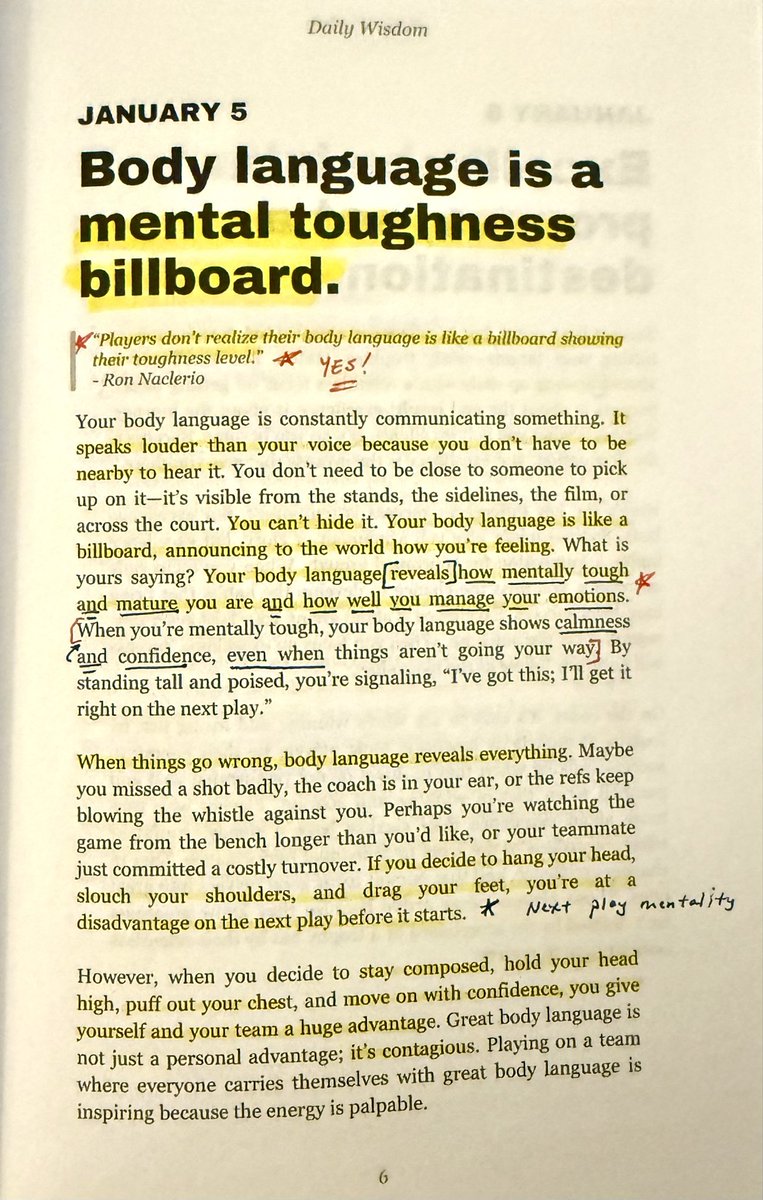 Daily Wisdom
JANUARY 5
Body language is a
mental toughness
billboard.
“Players don’t realize their body language is like a billboard showing
their toughness level.” YES!
- Ron Naclerio
Your body language is constantly communicating something. It
speaks louder than your voice because you don’t have to be
nearby to hear it. You don’t need to be close to someone to pick
up on it—it’s visible from the stands, the sidelines, the film, or
across the court. You can’t hide it. Your body language is like a
billboard, announcing to the world how you’re feeling. What is
yours saying? Your body language [reveals] how mentally tough
and mature you are and how well you manage your emotions.
[When you’re mentally tough, your body language shows calmness
and confidence, even when things aren’t going your way.] By
standing tall and poised, you’re signaling, “I’ve got this; I’ll get it
right on the next play.”
When things go wrong, body language reveals everything. Maybe
you missed a shot badly, the coach is in your ear, or the refs keep
blowing the whistle against you. Perhaps you’re watching the
game from the bench longer than you’d like, or your teammate
just committed a costly turnover. If you decide to hang your head,
slouch your shoulders, and drag your feet, you’re at a
disadvantage on the next play before it starts. Next play mentality
However, when you decide to stay composed, hold your head
high, puff out your chest, and move on with confidence, you give
yourself and your team a huge advantage. Great body language is
not just a personal advantage; it’s contagious. Playing on a team
where everyone carries themselves with great body language is
inspiring because the energy is palpable.
6